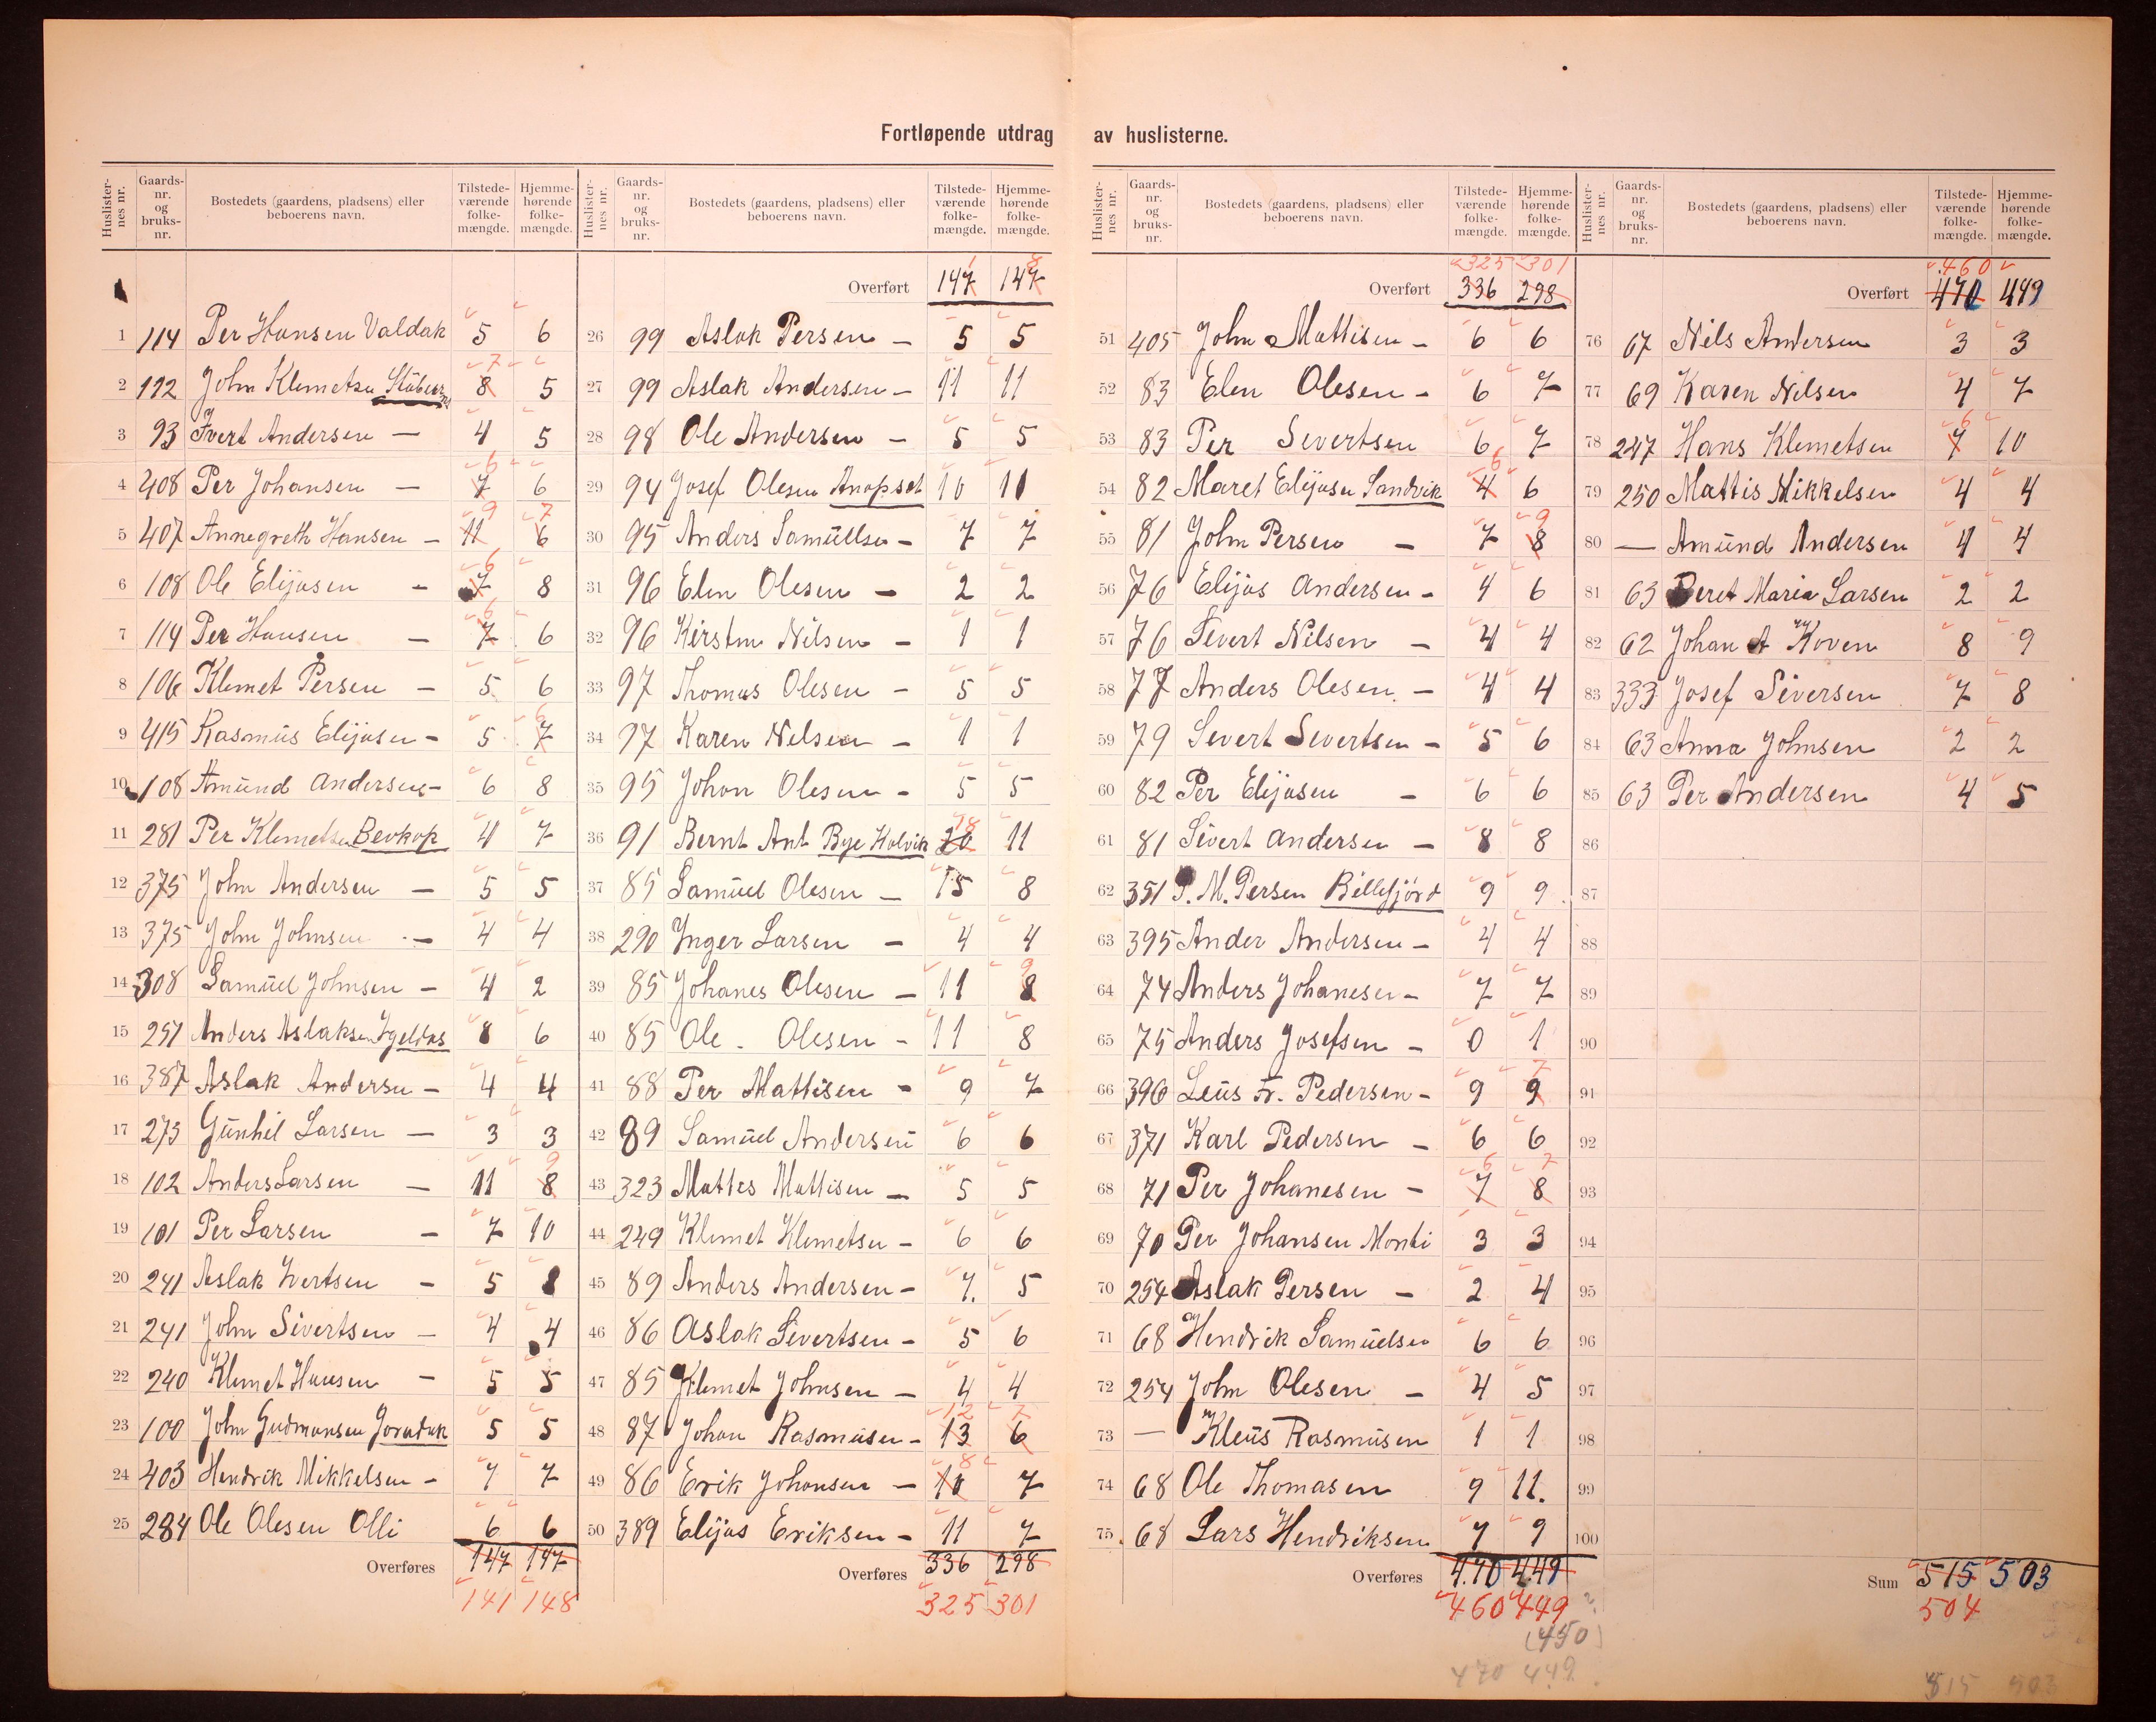 Fortløpende utdrag av huslisterne.
Huslister-nes nr. Gaards-nr. og bruks-nr. Bostedets (gaardens, pladsens) eller beboerens navn. Tilstede-værende folke-mængde. Hjemme-hørende folke-mængde.
1 114 Per Hansen Valdak 5 6
2 112 John Klemetsen 8 7 5
3 93 Ivert Andersen — 4 5
4 408 Per Johansen — 7 6 6
5 407 Annegreth Hansen — 11 9 6 7
6 108 Ole Elijasen — 7 6 8
7 114 Per Hansen — 7 6 6
8 106 Klemet Persen — 5 6
9 415 Rasmus Elijasen — 5 7 6
10 108 Amund Andersen — 6 8
11 281 Per Klemetsen Bevkop 4 7
12 375 John Andersen — 5 5
13 375 John Johnsen — 4 4
14 308 Samuel Johnsen — 4 2
15 251 Anders Aslaksen Igeldas 8 6
16 387 Aslak Andersen — 4 4
17 273 Gunhil Larsen — 3 3
18 102 Anders Larsen — 11 8 9
19 101 Per Larsen — 7 10
20 241 Aslak Ivertsen — 5 8
21 241 John Sivertsen — 4 4
22 240 Klemet Hansen — 5 5
23 100 John Gudmunsen 5 5
24 403 Hendrik Mikkelsen — 7 7
25 284 Ole Olesen Olli 6 6
Overføres 147 147
141 148
Huslister-nes nr. Gaards-nr. og bruks-nr. Bostedets (gaardens, pladsens) eller beboerens navn. Tilstede-værende folke-mængde. Hjemme-hørende folke-mængde.
Overført 147 1 147 8
26 99 Aslak Persen — 5 5
27 99 Aslak Andersen — 11 11
28 98 Ole Andersen — 5 5
29 94 Josef Olesen Anopset 10 10
30 95 Anders Samullsen — 7 7
31 96 Elen Olesen — 2 2
32 96 Kirsten Nilsen — 1 1
33 97 Thomas Olesen — 5 5
34 97 Karen Nilsen — 1 1
35 95 Johan Olesen — 5 5
36 91 Bernt Ant Bye Holvik 20 18 11
37 85 Samuel Olesen — 15 8
38 290 Ynger Larsen — 4 4
39 85 Johanes Olesen — 11 8 9
40 85 Ole Olesen — 11 8
41 88 Per Mattisen — 9 7
42 89 Samuel Andersen 6 6
43 323 Mattes Mattisen — 5 5
44 249 Klemet Klemetsen — 6 6
45 89 Anders Andersen — 7 5
46 86 Aslak Sivertsen — 5 6
47 85 Klemet Johnsen — 4 4
48 87 Johan Rasmusen — 13 12 6 7
49 86 Erik Johansen — 10 8 7
50 389 Elijas Eriksen — 11 7
Overføres 336 298
325 301
Huslister-nes nr. Gaards-nr. og bruks-nr. Bostedets (gaardens, pladsens) eller beboerens navn. Tilstede-værende folke-mængde. Hjemme-hørende folke-mængde.
325 301
Overført 336 298
51 405 John Mattisen — 6 6
52 83 Elen Olesen — 6 7
53 83 Per Severtsen 6 7
54 82 Maret Elijasen Sandvik 4 6 6
55 81 John Persen — 7 8 9
56 76 Elijas Andersen — 4 6
57 76 Sivert Nilsen — 4 4
58 77 Anders Olesen — 4 4
59 79 Severt Severtsen — 5 6
60 82 Per Elijasen — 6 6
61 81 Sivert Andersen — 8 8
62 351 P. M. Persen Billefjörd 9 9
63 395 Ander Andersen — 4 4
64 74 Anders Johanesen — 7 7
65 75 Anders Josefsen — 0 1
66 396 Leus Fr. Pedersen — 9 9 7
67 371 Karl Pedersen — 6 6
68 71 Per Johanesen — 7 6 8 7
69 70 Per Johansen Monti 3 3
70 254 Aslak Persen — 2 4
71 68 Hendrik Samuelsen 6 6
72 254 John Olesen — 4 5
73 — Kleus Rasmusen 1 1
74 68 Ole Thomasen 9 11.
75 68 Lars Hendriksen 7 9
Overføres 470 449
460 449
(450)
470 449.
Huslister-nes nr. Gaards-nr. og bruks-nr. Bostedets (gaardens, pladsens) eller beboerens navn. Tilstede-værende folke-mængde. Hjemme-hørende folke-mængde.
460
Overført 470 449
76 67 Nils Andersen 3 3
77 69 Karen Nilsen 4 7
78 247 Hans Klemetsen 7 6 10
79 250 Mattis Mikkelsen 4 4
80 — Amund Andersen 4 4
81 63 Beret Maria Larsen 2 2
82 62 Johan A Koven 8 9
83 333 Josef Siversen 7 8
84 63 Anna Johnsen 2 2
85 63 Per Andersen 4 5
86
87
88
89
90
91
92
93
94
95
96
97
98
99
100
Sum 515 503
504
515 503